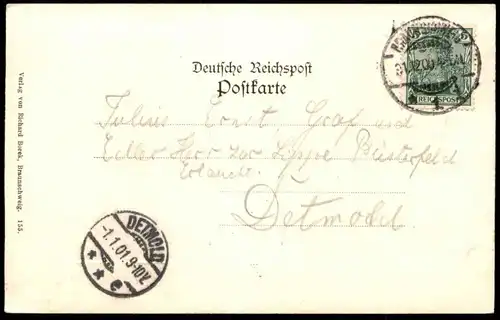 Deutsche Reichspost
Postkarte
REICHSPOST
31.12.00
Julius Ernst Graf und
Edler Herr zur Lippe Biesterfeld
Erlaucht
Detmold
DETMOLD
-1.1.01.9-10V.
* * e
Verlag von Richard Borek, Braunschweig. 155.